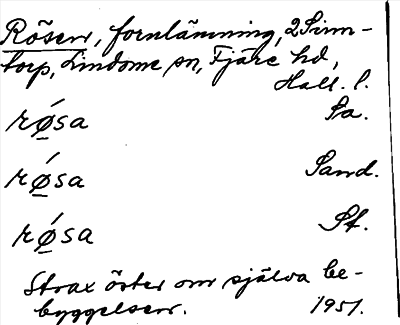 Rösen, fornlämning, 2 Sinn-
torp, Lindome sn, Fjäre hd,
Hall. l.
rǿsa Sa.
rǿsa Sand.
rǿsa St.
Strax öster om själva be-
byggelsen. 1951.